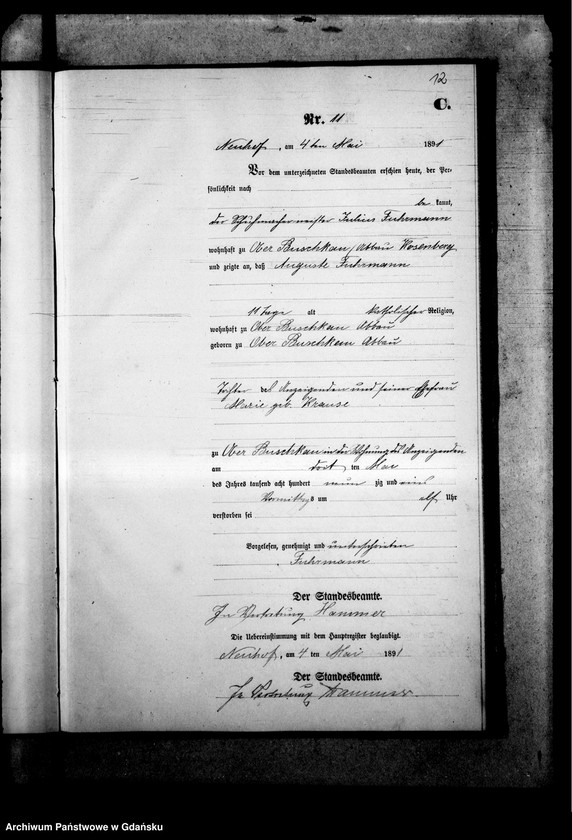 12
C.
Nr. 11
Neuhof, am 4 ten Mai 1891
Vor dem unterzeichneten Standesbeamten erschien heute, der Per-
sönlichkeit nach
be kannt,
der Schuhmachermeister Julius Fuhrmann
wohnhaft zu Ober Buschkau, Abbau
und zeigte an, daß Auguste Fuhrmann
11 Tage alt katholischer Religion,
wohnhaft zu Ober Buschkau Abbau
geboren zu Ober Buschkau Abbau
Tochter des Anzeigenden und seiner Ehefrau
Marie geb. Krause
zu Ober Buschkau in der Wohnung des Anzeigenden
am ten Mai
des Jahres tausend acht hundert neun zig und eins
Vormittags um elf Uhr
verstorben sei
Vorgelesen, genehmigt und unterschrieben
Fuhrmann
Der Standesbeamte.
In Vertretung Hammer
Die Uebereinstimmung mit dem Hauptregister beglaubigt.
Neuhof, am 4 ten Mai 1891
Der Standesbeamte.
In Vertretung Hammer.
Archiwum Państwowe w Gdańsku